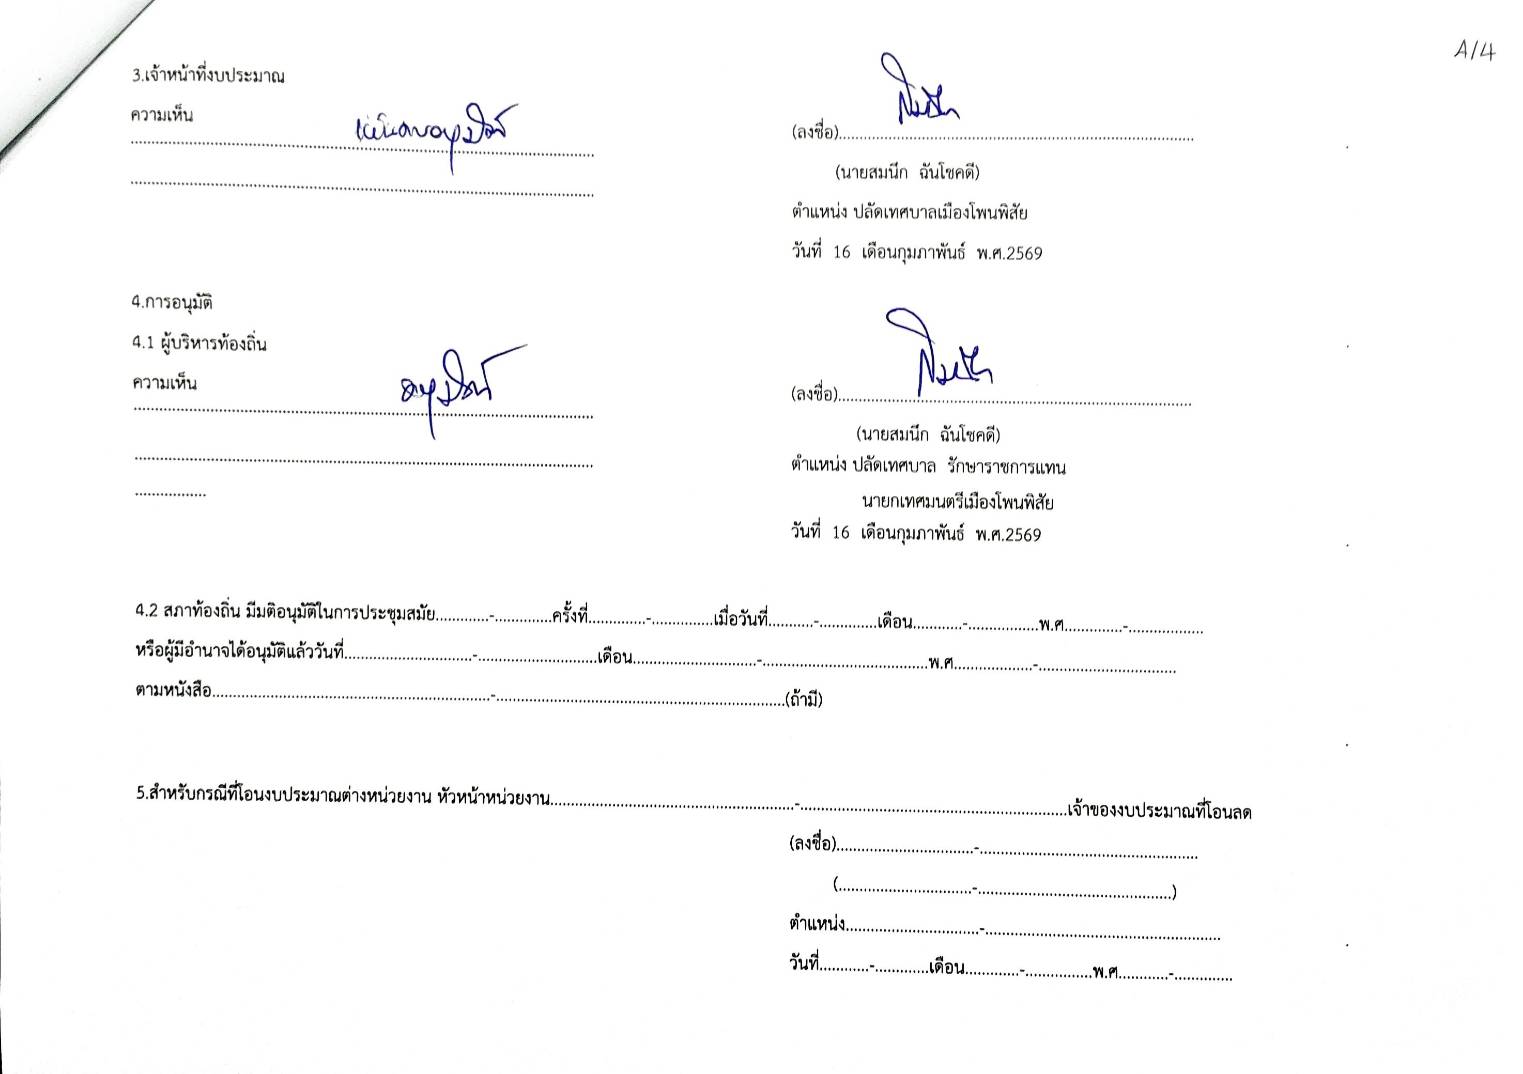 A/4
3.เจ้าหน้าที่งบประมาณ
ความเห็น เห็นควรอนุมัติ
(ลงชื่อ)....................................................................................
(นายสมนึก ฉันโชคดี)
ตำแหน่ง ปลัดเทศบาลเมืองโพนพิสัย
วันที่ 16 เดือนกุมภาพันธ์ พ.ศ.2569
4.การอนุมัติ
4.1 ผู้บริหารท้องถิ่น
ความเห็น อนุมัติ
(ลงชื่อ)....................................................................................
(นายสมนึก ฉันโชคดี)
ตำแหน่ง ปลัดเทศบาล รักษาราชการแทน
นายกเทศมนตรีเมืองโพนพิสัย
วันที่ 16 เดือนกุมภาพันธ์ พ.ศ.2569
4.2 สภาท้องถิ่น มีมติอนุมัติในการประชุมสมัย.............-..............ครั้งที่..............-...............เมื่อวันที่...........-..............เดือน............-.................พ.ศ..............-..................
หรือผู้มีอำนาจได้อนุมัติแล้ววันที่...............................-.............................เดือน..............................-........................................พ.ศ...................-.................................
ตามหนังสือ...................................................................-.....................................................................(ถ้ามี)
5.สำหรับกรณีที่โอนงบประมาณต่างหน่วยงาน หัวหน้าหน่วยงาน...........................................................-................................................................เจ้าของงบประมาณที่โอนลด
(ลงชื่อ).................................-....................................................
(................................-..............................................)
ตำแหน่ง................................-........................................................
วันที่............-.............เดือน.............-................พ.ศ............-..............